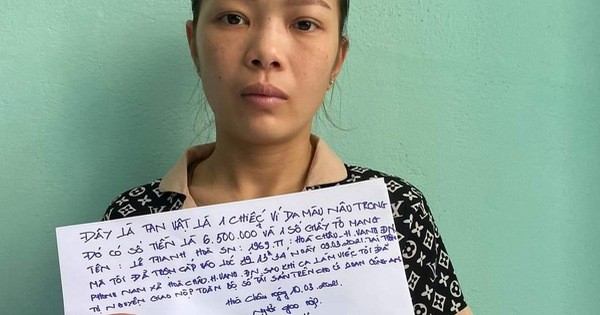 ĐÂY LÀ TAN VẬT LÀ 1 CHIẾC VÍ DA MÀU NÂU TRONG
ĐÓ CÓ SỐ TIỀN LÀ 6.500.000 VÀ 1 SỐ GIẤY TỜ MANG
TÊN: LÊ THANH HOÀ SN: 1969. TT: HOÀ CHÂU. H. VANG. ĐN
MÀ TÔI ĐÃ TRỘM CẮP VÀO LÚC 19. 13 03.03.2021. TẠI TIỆN
PHONG NAM XÃ HOÀ CHÂU. H. VANG. ĐN. SAU KHI CA LÀM VIỆC TÔI ĐÃ
TỰ NGUYỆN GIAO NỘP TOÀN BỘ SỐ TÀI SẢN TRÊN CHO CƠ QUAN CÔNG AN
Hoà Châu ngày 10.03.2021.
Người giao nộp.